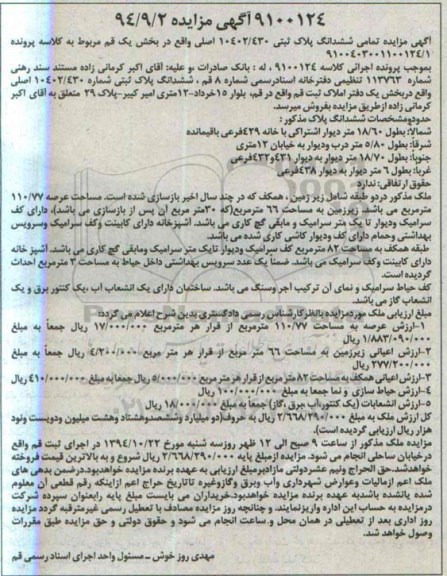 ۹۱۰۰۱۲۴ آگهی مزایده ۹۴/۹/۲
آگهی مزایده تمامی ششدانگ پلاک ثبتی ۱۰۴۰۲/۴۳۰ اصلی واقع در بخش یک قم مربوط به کلاسه پرونده
۹۱۰۰۴۰۳۰۰۱۱۰۰۱۲۴/۱
بموجب پرونده اجرائی کلاسه ۹۱۰۰۱۲۴ ، له : بانک صادرات ،و علیه: آقای اکبر کرمانی زاده مستند سند رهنی
شماره ۱۱۳۷۶۳ تنظیمی دفترخانه اسنادرسمی شماره ۸ قم ، ششدانگ پلاک ثبتی شماره ۱۰۴۰۲/۴۳۰ اصلی
واقع دربخش یک دفتر املاک ثبت قم واقع در قم، بلوار ۱۵خرداد-۱۲متری امیر کبیر-پلاک ۲۹ متعلق به آقای اکبر
کرمانی زاده ازطریق مزایده بفروش میرسد.
حدودومشخصات ششدانگ پلاک مذکور :
شمالا: بطول ۱۸/۶۰ متر دیوار اشتراکی با خانه ۴۲۹فرعی باقیمانده
شرقا: بطول ۵/۸۰ متر درب ودیوار به خیابان ۱۲متری
جنوبا: بطول ۱۸/۷۰ متر دیوار به دیوار ۴۳۱و۴۳۲فرعی
غربا: بطول ۶ متر دیوار به دیوار ۴۳۸فرعی
حقوق ارتفاقی: ندارد
ملک مذکور دردو طبقه شامل زیر زمین ، همکف که در چند سال اخیر بازسازی شده است. مساحت عرصه ۱۱۰/۷۷
مترمربع می باشد. زیرزمین به مساحت ۶۶ مترمربع(که ۳۰متر مربع آن پس از بازسازی می باشد)، دارای کف
سرامیک ودیوار تا یک متر سرامیک و مابقی گچ کاری می باشد. آشپزخانه دارای کابینت وکف سرامیک وسرویس
بهداشتی وحمام دارای کف ودیوار کاشی کاری شده می باشد.
طبقه همکف به مساحت ۸۲ مترمربع کف سرامیک ودیوار تایک متر سرامیک ومابقی گچ کاری می باشد. آشپز خانه
دارای کابینت وکف سرامیک می باشد. ضمنا یک عدد سرویس بهداشتی داخل حیاط به مساحت ۲ مترمربع احداث
گردیده است.
کف حیاط سرامیک و نمای آن ترکیب آجر وسنگ می باشد. ساختمان دارای یک انشعاب آب ،یک کنتور برق و یک
انشعاب گاز می باشد.
مبلغ ارزیابی ملک موردمزایده بانظرکارشناس رسمی دادگستری بدین شرح اعلام می گردد:
۱-ارزش عرصه به مساحت ۱۱۰/۷۷ مترمربع از قرار هر مترمربع ۱۷/۰۰۰/۰۰۰ ریال جمعاً به مبلغ
۱/۸۸۳/۰۹۰/۰۰۰ ریال
۲-ارزش اعیانی زیرزمین به مساحت ۶۶ متر مربع از قرار هر متر مربع ۴/۲۰۰/۰۰۰ ریال جمعاً به مبلغ
۲۷۷/۲۰۰/۰۰۰ ریال
۳-ارزش اعیانی همکف به مساحت ۸۲ متر مربع از قرار هر متر مربع ۵/۰۰۰/۰۰۰ ریال جمعا به مبلغ ۴۱۰/۰۰۰/۰۰۰ ریال
۴-ارزش حیاط سازی و نما جمعاً به مبلغ ۱۰۰/۰۰۰/۰۰۰ ریال
۵-ارزش انشعابات (یک کنتور،آب ،برق ،گاز) جمعاً به مبلغ ۱۸/۰۰۰/۰۰۰ ریال
کل ارزش ملک به مبلغ ۲/۶۶۸/۲۹۰/۰۰۰ ریال به حروف(دو میلیارد وششصدوهشتاد وهشت میلیون ودویست ونود
هزار ریال ارزیابی گردیده است).
مزایده ملک مذکور از ساعت ۹ صبح الی ۱۲ ظهر روزسه شنبه مورخ ۱۳۹۴/۱۰/۲۲ در اجرای ثبت قم واقع
درخیابان ساحلی انجام می شود. مزایده ازمبلغ پایه ۲/۶۶۸/۲۹۰/۰۰۰ ریال شروع و به بالاترین قیمت فروخته
خواهدشد.حق الحراج ونیم عشردولتی مازادبرمبلغ ارزیابی به عهده برنده مزایده خواهدبود.درضمن بدهی های
ملک اعم ازمالیات وعوارض شهرداری وآب وبرق وگازوغیره تاتاریخ حراج اعم ازاینکه رقم قطعی آن معلوم
شده یانشده باشدبه عهده برنده مزایده خواهدبود.خریداران می بایست مبلغ پایه رابعنوان سپرده شرکت
درمزایده به حساب این اداره واریزنمایند، و چنانچه روز مزایده مصادف با تعطیل رسمی غیرمترقبه گردد مزایده
روز اداری بعد از تعطیلی در همان محل و ساعت انجام می شود و حقوق دولتی و حق مزایده طبق مقررات
وصول خواهد شد.
مهدی روز خوش – مسئول واحد اجرای اسناد رسمی قم